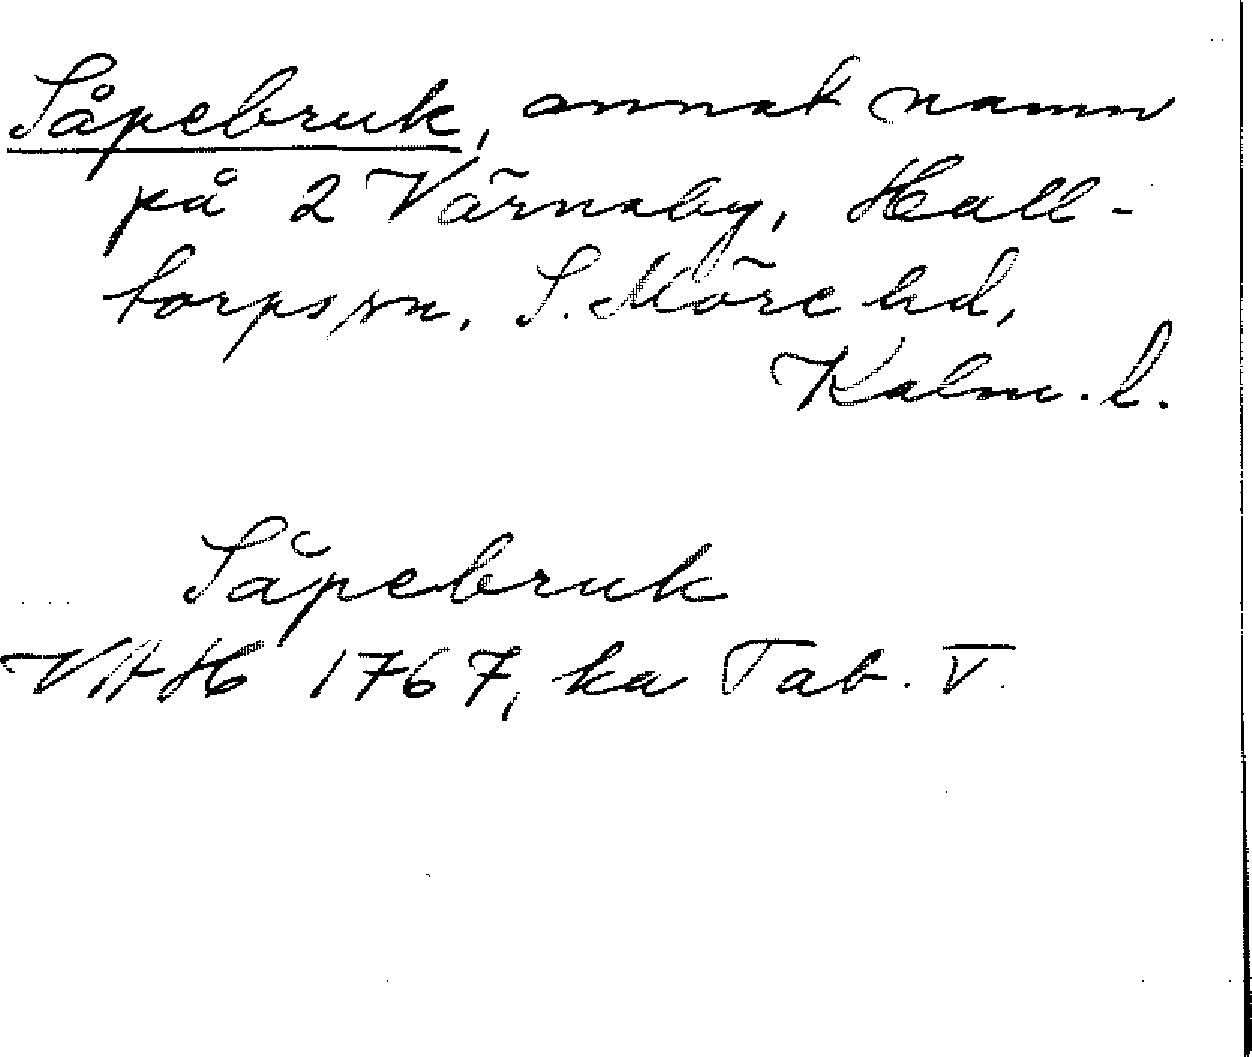 Såpebruk, annat namn
på 2 Värnaby, Hall-
torps sn. S. Möre hd,
Kalm. l.
Såpebruk
VAH 1767, ka Tab. V.